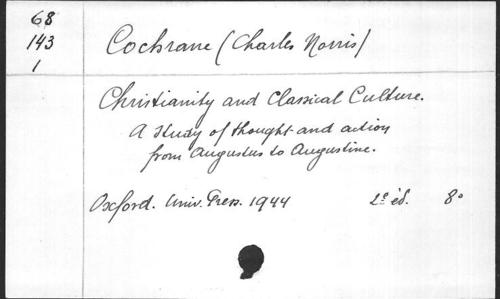 68
143
1
Cochrane (Charles Norris)
Christianity and Classical Culture.
A study of thought and action
from Augustus to Augustine.
Oxford. Univ. Press. 1944 2e éd. 8o